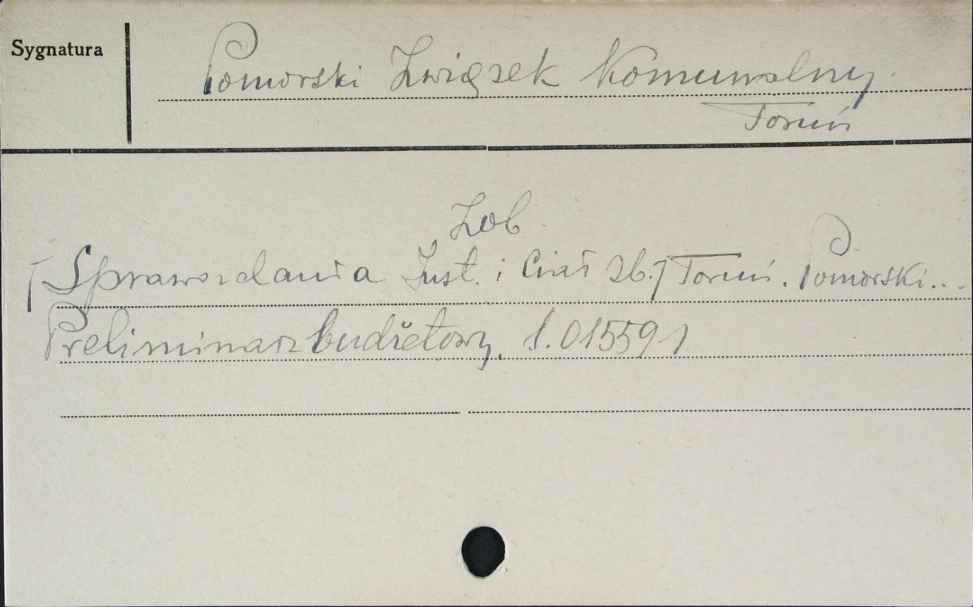 Sygnatura
Pomorski Związek Komunalny.
Toruń
Zob.
[Sprawozdania Inst. i Ciał Zb.] Toruń. Pomorski...
Preliminarz budżetowy. S. 015591